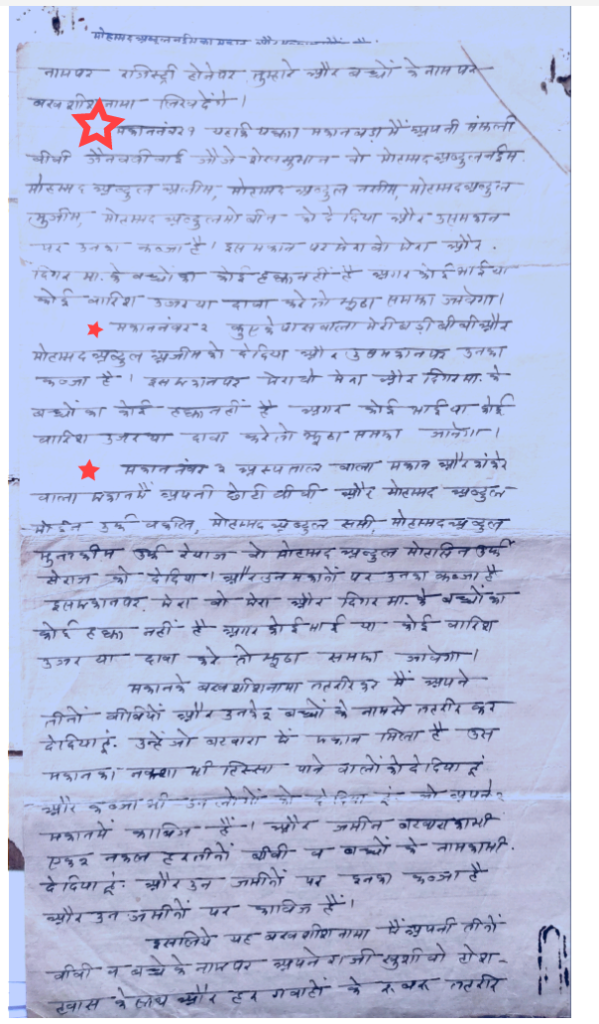 मोहम्मद अब्दुल नईम का मकान और
नामपर रजिस्ट्री होनेपर तुम्हारे और बच्चों के नाम पर
बखशीशनामा लिखदेंगे।
मकान नंबर १ पक्का मकान बड़ा मैं अपनी मंझली
बीबी जैनबबी बाई वो मोहम्मद अब्दुल नईम
मोहम्मद अब्दुल अलीम, मोहम्मद अब्दुल नसीम, मोहम्मद अब्दुल
मुजीम, मोहम्मद अब्दुल मोबीन को दे दिया और उस मकान
पर उनका कब्जा है। इस मकान पर मेरा वो मेरा और
दिगर मा. के बच्चों का कोई हक्क नहीं है अगर कोई भाई या
कोई वारिश उजर या दावा करे तो झूठा समझा जावेगा।
मकान नंबर २ कुए के पास वाला मेरी बड़ी बीबी और
मोहम्मद अब्दुल अजीम को देदिया और उस मकान पर उनका
कब्जा है। इस मकान पर मेरा वो मेरा और दिगर मा. के
बच्चों का कोई हक्क नहीं है अगर कोई भाई या कोई
वारिश उजर या दावा करे तो झूठा समझा जावेगा।
मकान नंबर ३ अस्पताल वाला मकान और
वाला मकान मैं अपनी छोटी बीबी और मोहम्मद अब्दुल
मोईन उर्फ वकील, मोहम्मद अब्दुल समी, मोहम्मद अब्दुल
मुनाकीम उर्फ रेयाज वो मोहम्मद अब्दुल मोहसिन उर्फ
सेराज को देदिया। और उन मकानों पर उनका कब्जा है
इस मकान पर मेरा वो मेरा और दिगर मा. के बच्चों का
कोई हक्क नहीं है अगर कोई भाई या कोई वारिश
उजर या दावा करे तो झूठा समझा जावेगा।
मकान के बखशीशनामा तहरीर कर मैं अपने
तीनों बीबियों और उनके २ बच्चों के नाम से तहरीर कर
देदिया हूं. उन्हें जो बटवारा में मकान मिला है उस
मकान का नक्शा भी हिस्सा पाने वालों को देदिया हूं
और कब्जा भी उन लोगों को दे दिया हूं वो अपने २
मकान में काबिज हैं। और जमीन बटवारा का भी
एक २ नकल हर तीनों बीबी व बच्चों के नाम का भी
देदिया हूं. और उन जमीनों पर इनका कब्जा है
और उन जमीनों पर काबिज हैं।
इसलिये यह बखशीशनामा मैं अपनी तीनों
बीबी व बच्चे के नाम पर अपने राजी खुशी वो होश-
हवास के साथ और हर गवाहों के रूबरू तहरीर